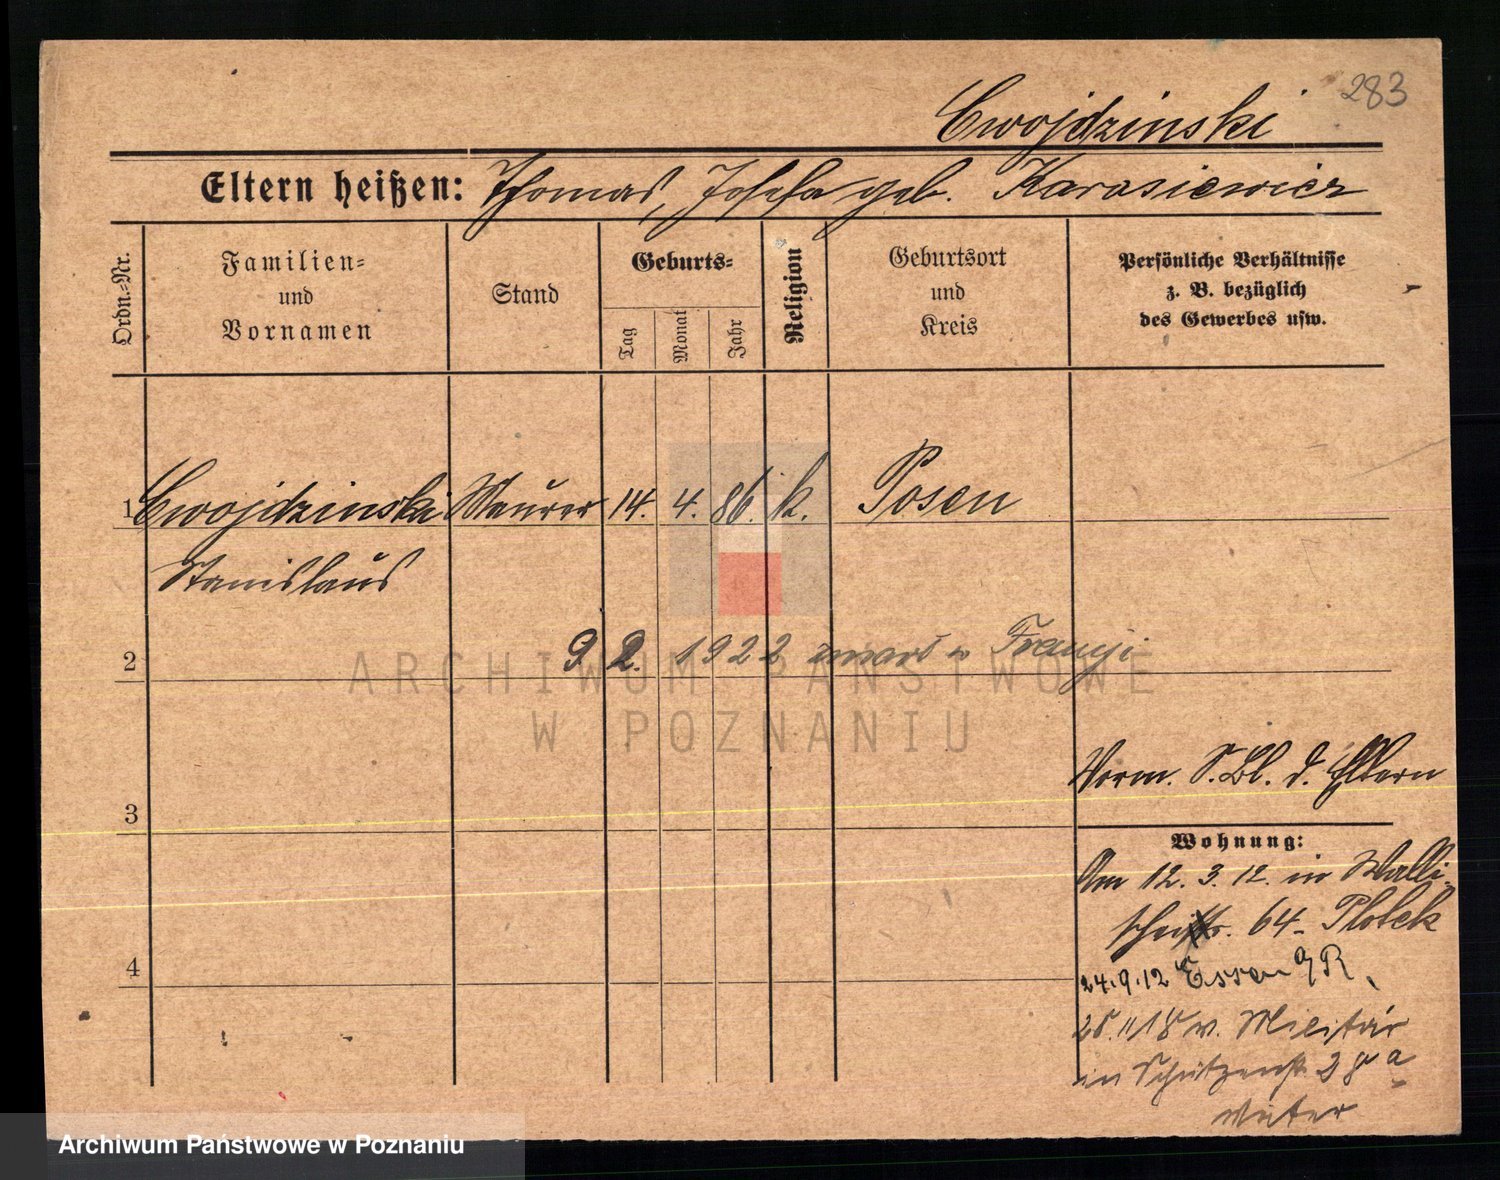 283
Cwojdzinski
Eltern heißen: Thomas, Josefa geb. Karasiewicz
Ordn.-Nr.
Familien-
und
Vornamen
Stand
Geburts-
Tag
Monat
Jahr
Religion
Geburtsort
und
Kreis
Persönliche Verhältnisse
z. B. bezüglich
des Gewerbes usw.
1 Cwojdzinski Maurer 14. 4. 86. k. Posen
Stanislaus
2 9. 2. 1922 zmarł w Francji
3
Vorm. S. Bl. d. Eltern
Wohnung:
Am 12. 3. 12. in Walli-
64 - Plotek
4
24.9.12 Essen a/R
28.11 18 v. Militär
in Schützenstr.
Mutter
ARCHIWUM PAŃSTWOWE
W POZNANIU
Archiwum Państwowe w Poznaniu